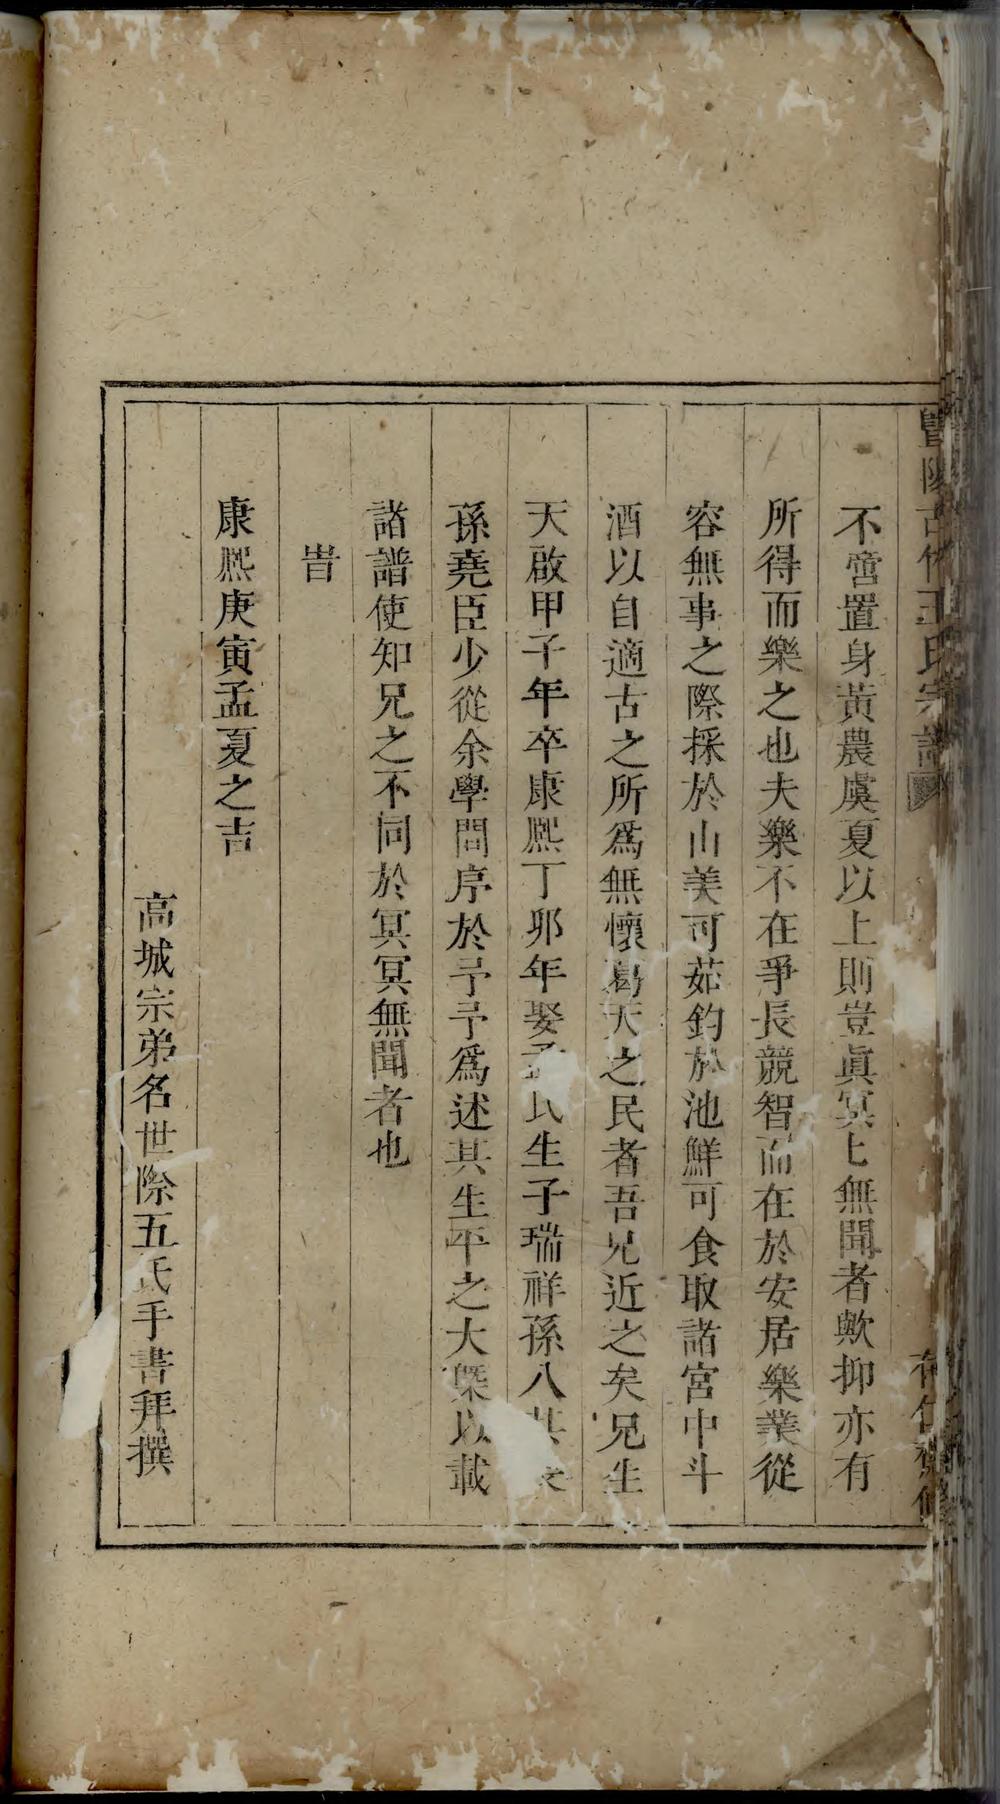 不啻置身黃農虞夏以上則豈眞冥七無聞者歟抑亦有
所得而樂之也夫樂不在爭長競智而在於安居樂業從
容無事之際採於山美可茹釣於池鮮可食取諸宮中斗
酒以自適古之所爲無懷葛天之民者吾兄近之矣兄生
天啟甲子年卒康熈丁邜年娶氏生子瑞祥孫八其
孫堯臣少從余學間序於予予爲述其生平之大槩以載
諸譜使知兄之不同於冥冥無聞者也
旹
康熈庚寅孟夏之吉
高城宗弟名世際五氏手書拜撰